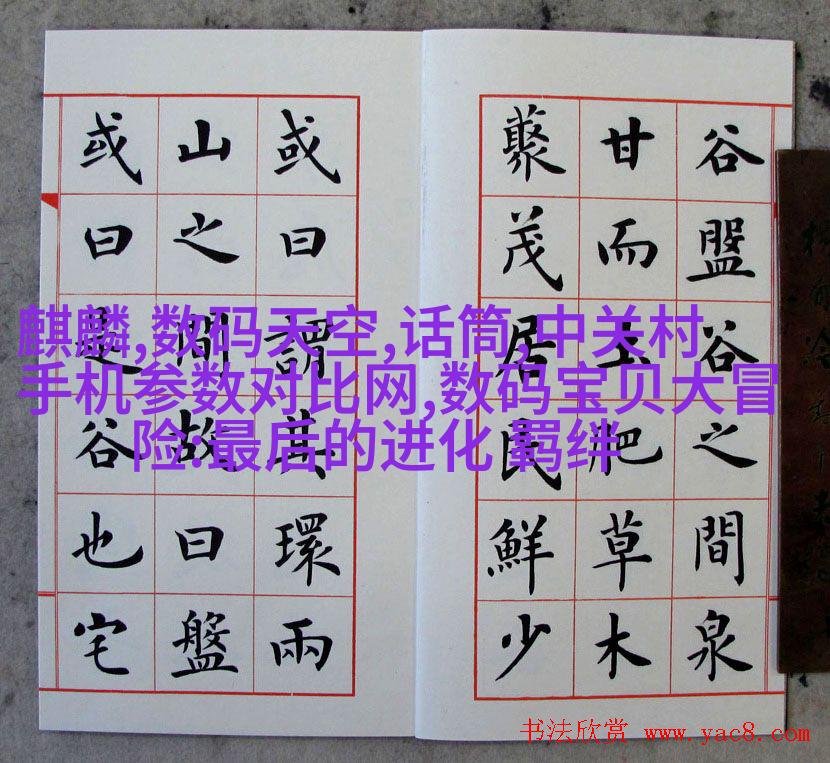 谷盤谷之間泉
甘而土肥草木
藂茂居民鮮少
或曰謂其環兩
山之間故曰盤
或曰是谷也宅
麒麟,数码天空,话筒,中关村
手机参数对比网,数码宝贝大冒
险:最后的进化 羁绊
书法欣赏 www.yac8.com